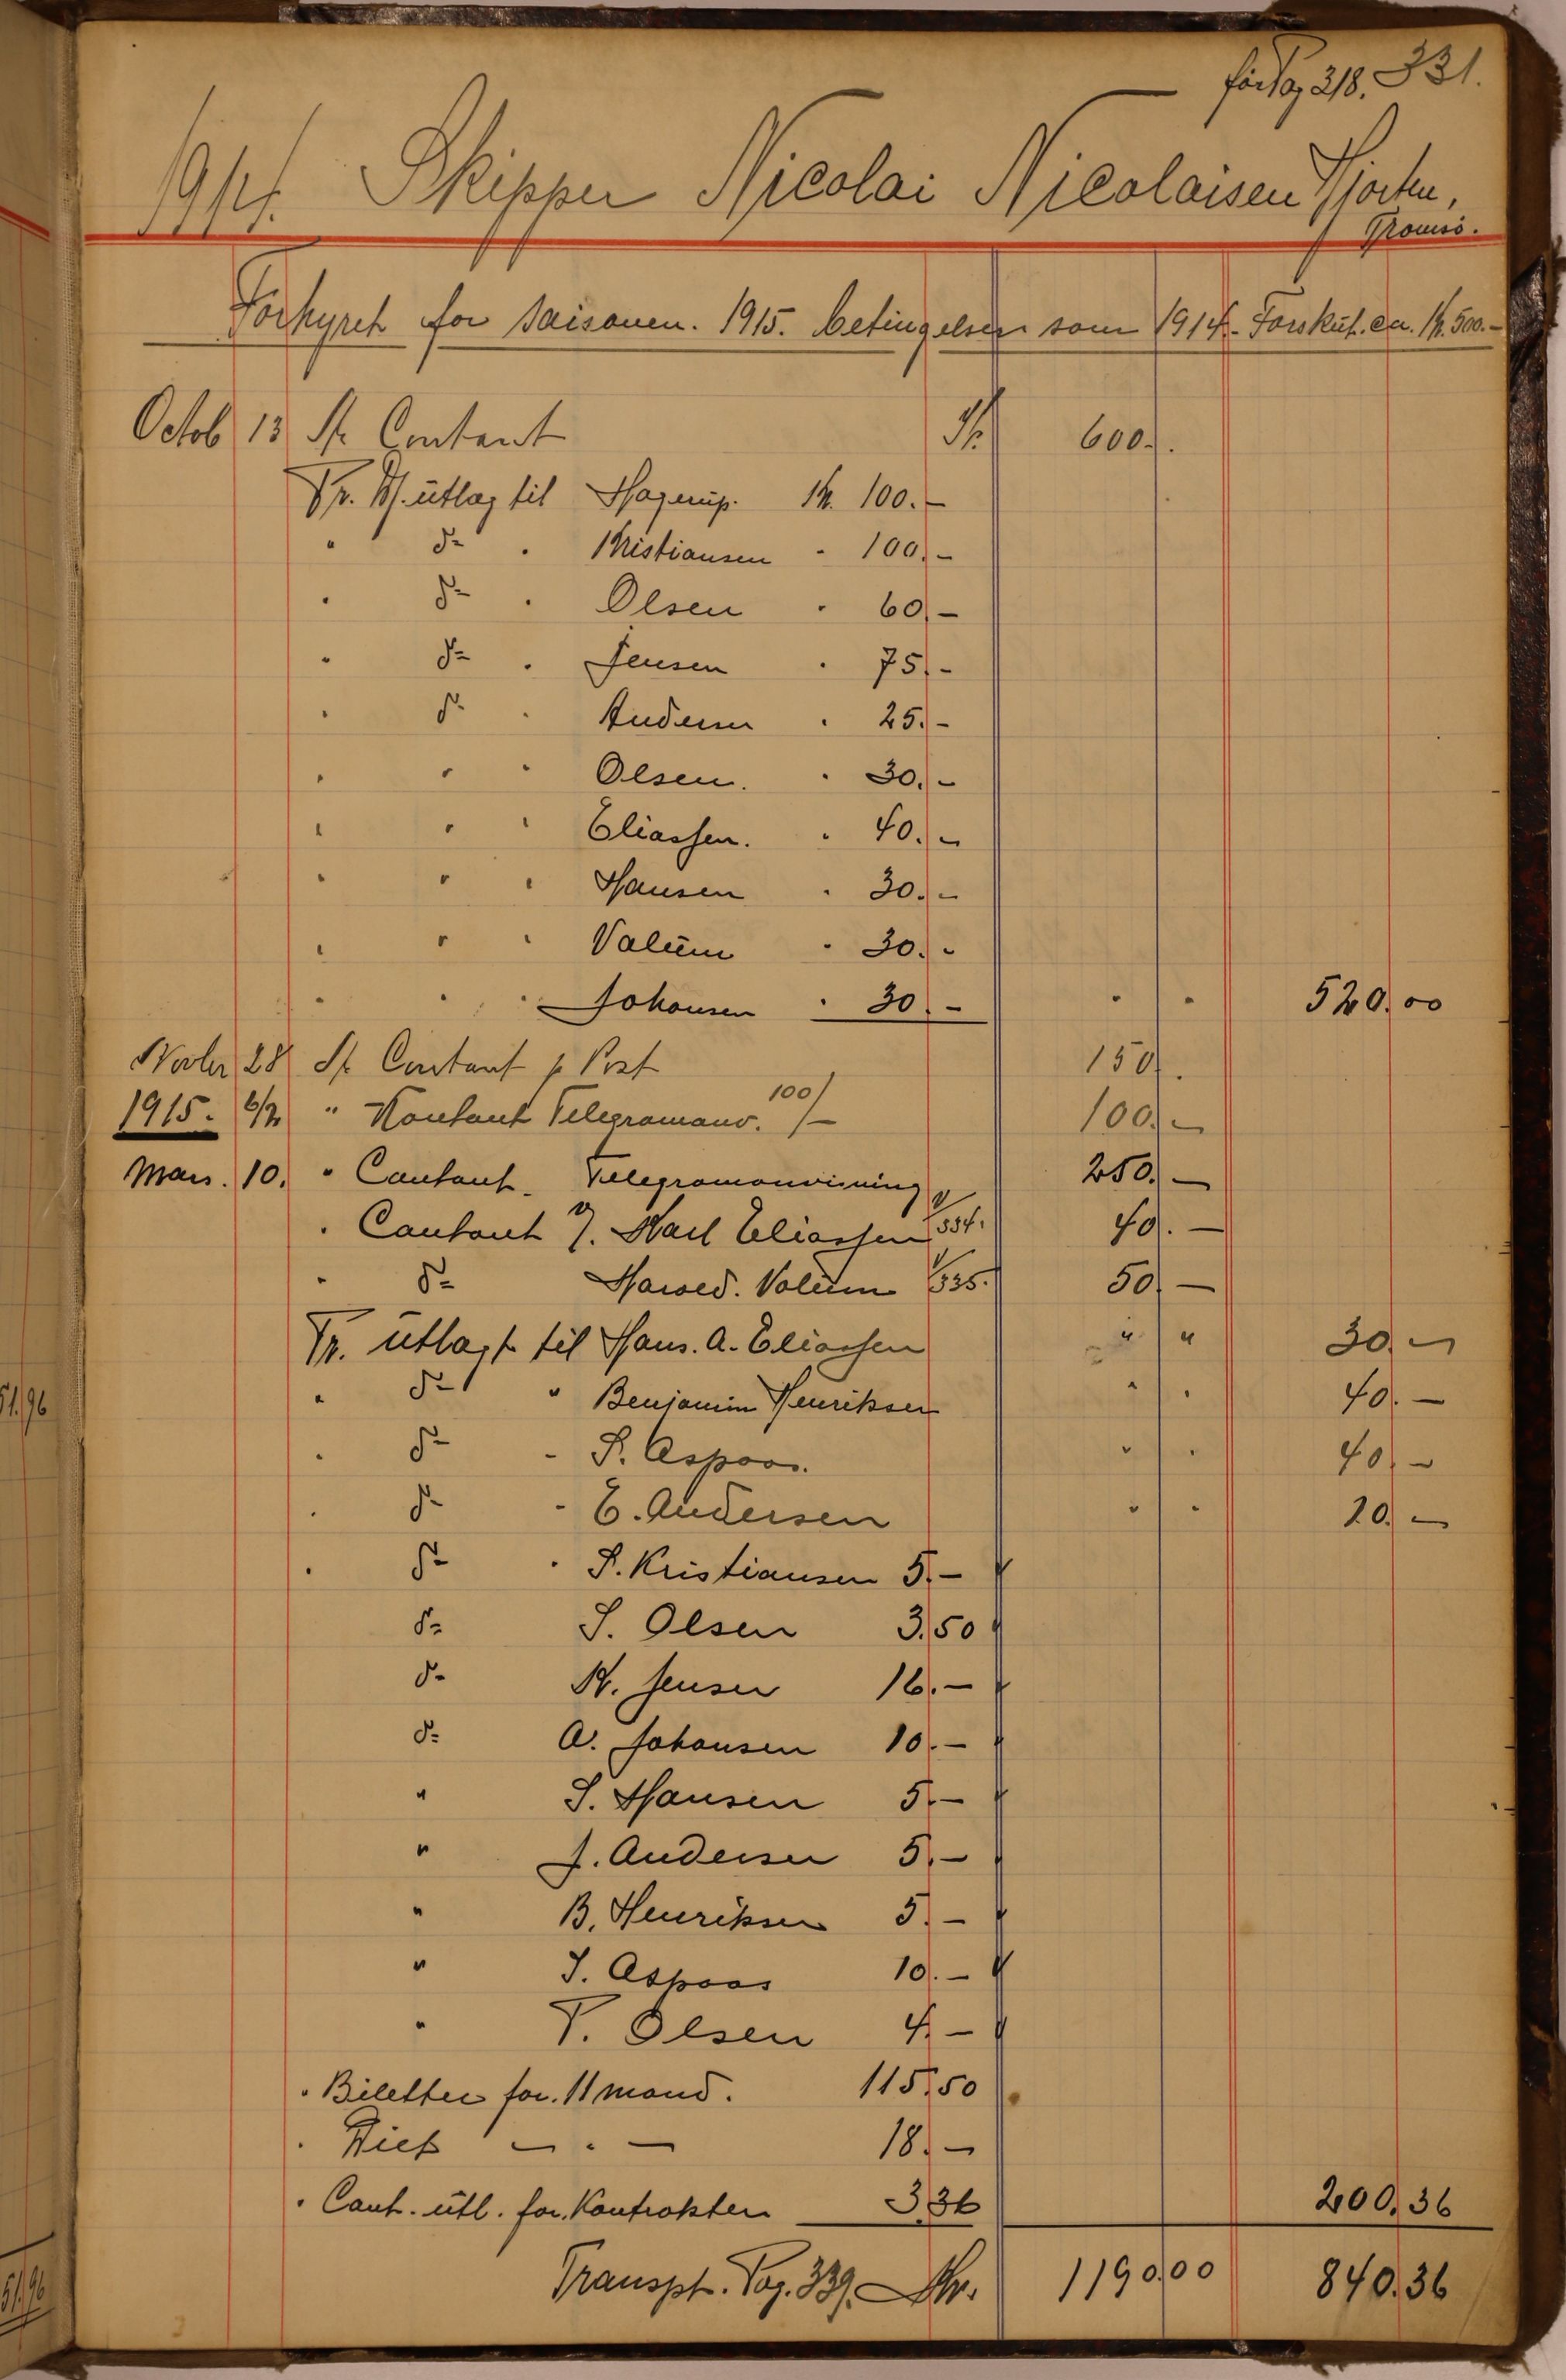 för Pag 318. 331.
1914. Skipper Nicolai Nicolaisen Hjorten,
Tromsö.
Forhyret for saisonen. 1915. betingelser som 1914.- Forskut. ca. Kr. 500.-
Octob 13 At Contant Kr. 600.
Pr. utlæg til Hagerup. Kr. 100.-
" do " Kristiansen " 100.-
" do " Olsen " 60.-
" do " Jensen " 75.-
" do " Andersen " 25.-
" " " Olsen. " 30.-
" " " Eliassen. " 40.-
" " " Hansen " 30.-
" " " Valüm " 30.-
" " " Johansen " 30.- " " 520.00
Novbr 28 At Contant p Post 150.
1915. 6/2 " Kontant Telegramanv. 100/- 100.-
Mars. 10. " Contant. Telegramanvisning 250.-
" Contant Karl Eliassen 334. 40.-
" do Harald. Valüm 335. 50.-
Pr. utlagt til Hans. A. Eliassen " " 30.-
" do " Benjamin Henriksen " " 40.-
" do " S. Aspaas. " " 40.-
" do " E. Andersen " " 20.-
" do " S. Kristiansen 5.-
do S. Olsen 3.50
do K. Jensen 16.-
do A. Johansen 10.-
" S. Hansen 5.-
" J. Andersen 5.-
" B. Henriksen 5.-
" S. Aspaas 10.-
" T. Olsen 4.-
" Biletter for. 11 mand. 115.50
" Diet - " - 18.-
" Cont. utl. for. Kontrakter 3.36 200.36
Transpt. Pag. 339. Kr. 1190.00 840.36
51.96
51.96